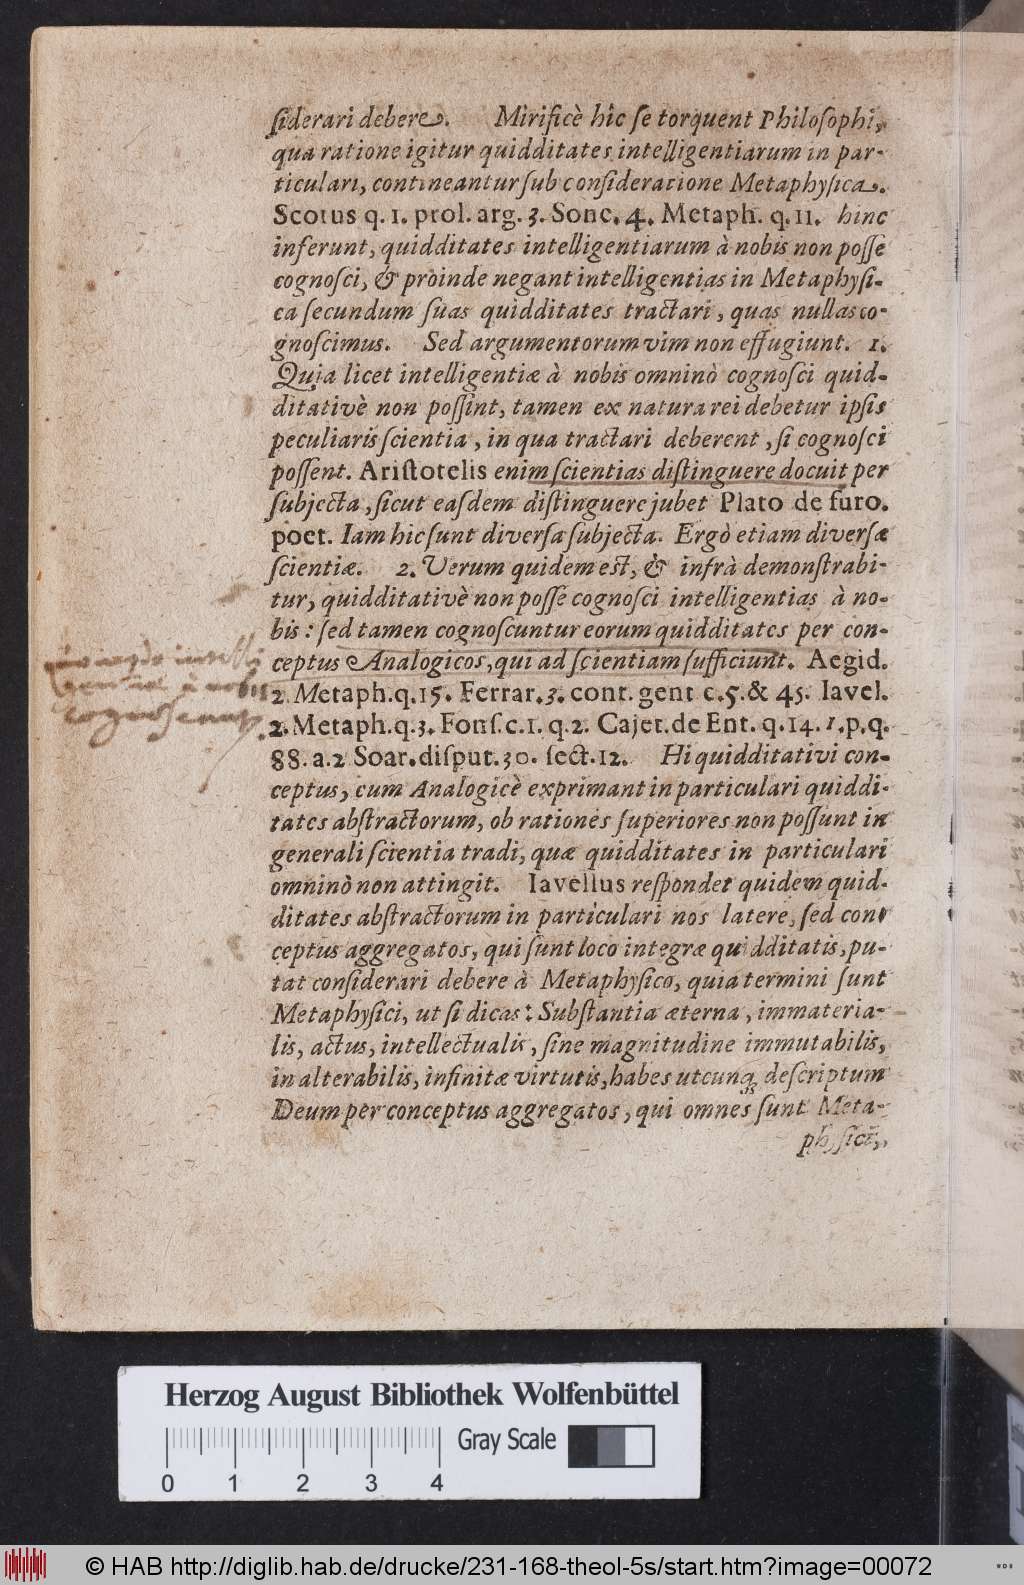 ſiderari debere. Mirificè hîc ſe torquent Philoſophi,
qua ratione igitur quidditates intelligentiarum in par-
ticulari, contineantur ſub conſideratione Metaphyſica.
Scotus q. 1. prol. arg. 3. Sonc. 4. Metaph. q. 11. hinc
inferunt, quidditates intelligentiarum à nobis non poſſe
cognoſci, & proinde negant intelligentias in Metaphyſi-
ca ſecundum ſuas quidditates tractari, quas nullas co-
gnoſcimus. Sed argumentorum vim non effugiunt. 1.
Quia licet intelligentiæ à nobis omninò cognoſci quid-
ditativè non poſſint, tamen ex natura rei debetur ipſis
peculiaris ſcientia, in qua tractari deberent, ſi cognoſci
poſſent. Ariſtotelis enim ſcientias diſtinguere docuit per
ſubjecta, ſicut eaſdem diſtinguere jubet Plato de furo.
poet. Iam hic ſunt diverſa ſubjecta. Ergò etiam diverſæ
ſcientiæ. 2. Verum quidem est, & infrà demonſtrabi-
tur, quidditativè non poſſe cognoſci intelligentias à no-
bis: ſed tamen cognoſcuntur eorum quidditates per con-
ceptus Analogicos, qui ad ſcientiam ſufficiunt. Aegid.
2. Metaph. q. 15. Ferrar. 3. cont. gent c. 5. & 45. Iavel.
2. Metaph. q. 3. Fonſ. c. 1. q. 2. Cajet. de Ent. q. 14. 1. p. q.
88. a. 2 Soar. diſput. 30. ſect. 12. Hi quidditativi con-
ceptus, cum Analogicè exprimant in particulari quiddi-
tates abſtractorum, ob rationes ſuperiores non poſſunt in
generali ſcientia tradi, quæ quidditates in particulari
omninò non attingit. Iavellus reſpondet quidem quid-
ditates abſtractorum in particulari nos latere, ſed con-
ceptus aggregatos, qui ſunt loco integræ quidditatis, pu-
tat conſiderari debere à Metaphyſico, quia termini ſunt
Metaphyſici, ut ſi dicas: Subſtantia æterna, immateria-
lis, actus, intellectualis, ſine magnitudine immutabilis,
inalterabilis, infinitæ virtutis, habes utcunq; deſcriptum
Deum per conceptus aggregatos, qui omnes ſunt Meta-
phyſici,
quomodo intelli
gentiæ à nobis
cognoscunt
Herzog August Bibliothek Wolfenbüttel
Gray Scale
0 1 2 3 4
© HAB http://diglib.hab.de/drucke/231-168-theol-5s/start.htm?image=00072